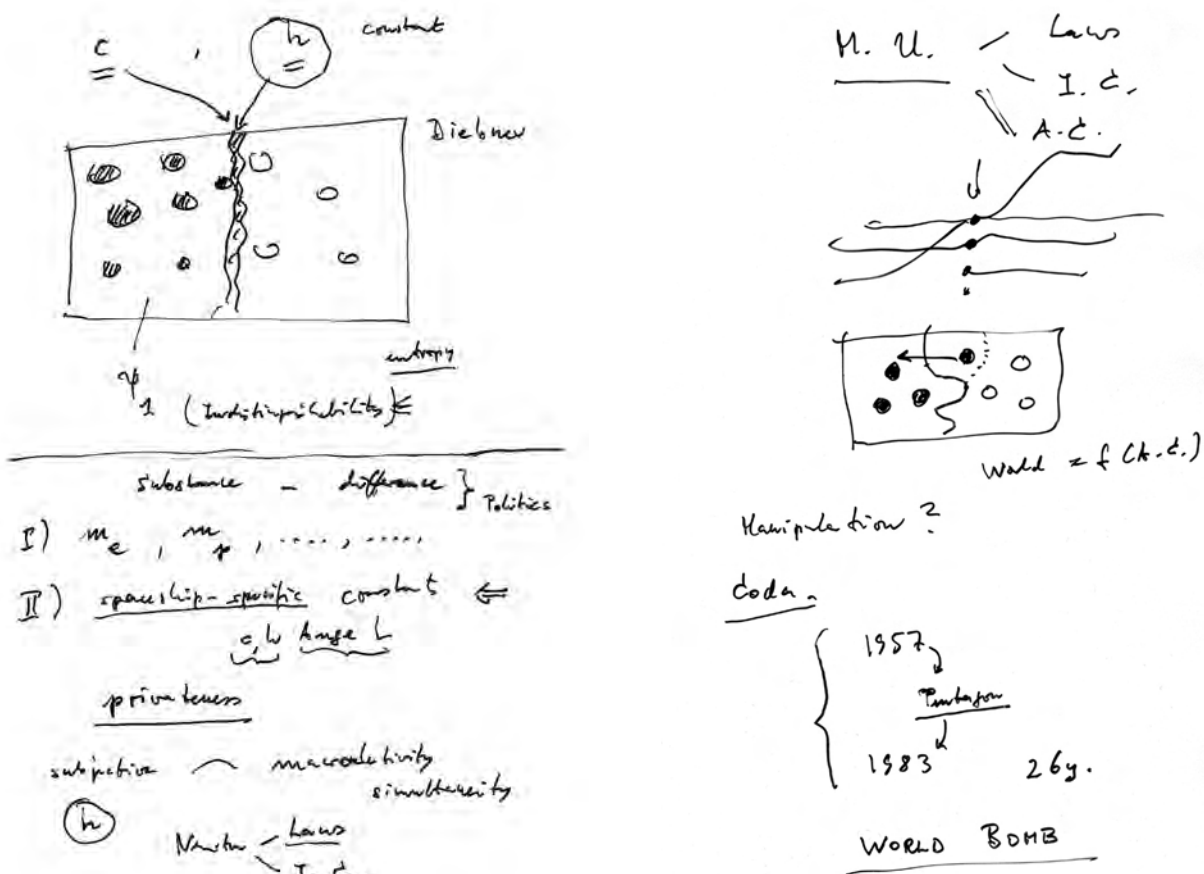 c , h constant
Diebner
entropy
ψ
1 (Indistinguishability) ⇐
substance – difference } Politics
I) m_e , m_p , ...., ....,
II) spaceship-specific constant ⇐
c, h
privateness
subjective
simultaneity
h
Newton < Laws
I. C.
M. U. < Laws
I. C.
A. C.
World = f (A. C.)
Manipulation ?
Coda.
1957
Pentagon
1983 26y.
WORLD BOMB